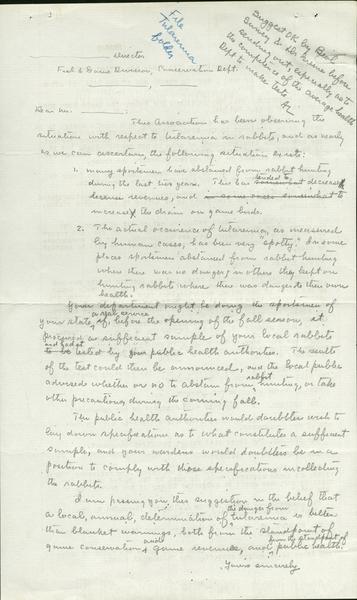 File
Tularemia
folder
Suggest OK by Bell
before
sending out, especially as to
the competence of the average health
Dept to make tests
Director
Fish & Game Division, Conservation Dept.
Dear Mr.
This Association has been observing the
situation with respect to tularemia in rabbits, and as nearly
as we can ascertain, the following situation exists:
1. Many sportsmen have abstained from rabbit hunting
during the last two years. This has tended to somewhat decrease
license revenues, and in some cases somewhat to
increase the drain on game birds.
2. The actual occurrence of tularemia, as measured
by human cases, has been very "spotty." In some
places sportsmen abstained from rabbit hunting
when there was no danger; in others they kept on
hunting rabbits where there was danger to their own
health.
Your department might be doing the sportsmen of
your state a great service if, before the opening of the fall season, it
procured a sufficient sample of your local rabbits
and had it to be tested by your public health authorities. The results
of the test could then be announced, and the local public
advised whether or no to abstain from rabbit hunting, or take
other precautions during the coming fall.
The public health authorities would doubtless wish to
lay down specifications as to what constitutes a sufficient
sample, and your wardens would doubtless be in a
position to comply with those specifications in collecting
the rabbits.
I am passing you this suggestion in the belief that
a local, annual, determination of the danger from tularemia is better
than blanket warnings, both from the standpoint of
game conservation and game revenues, and from the standpoint of public health.
Yours sincerely